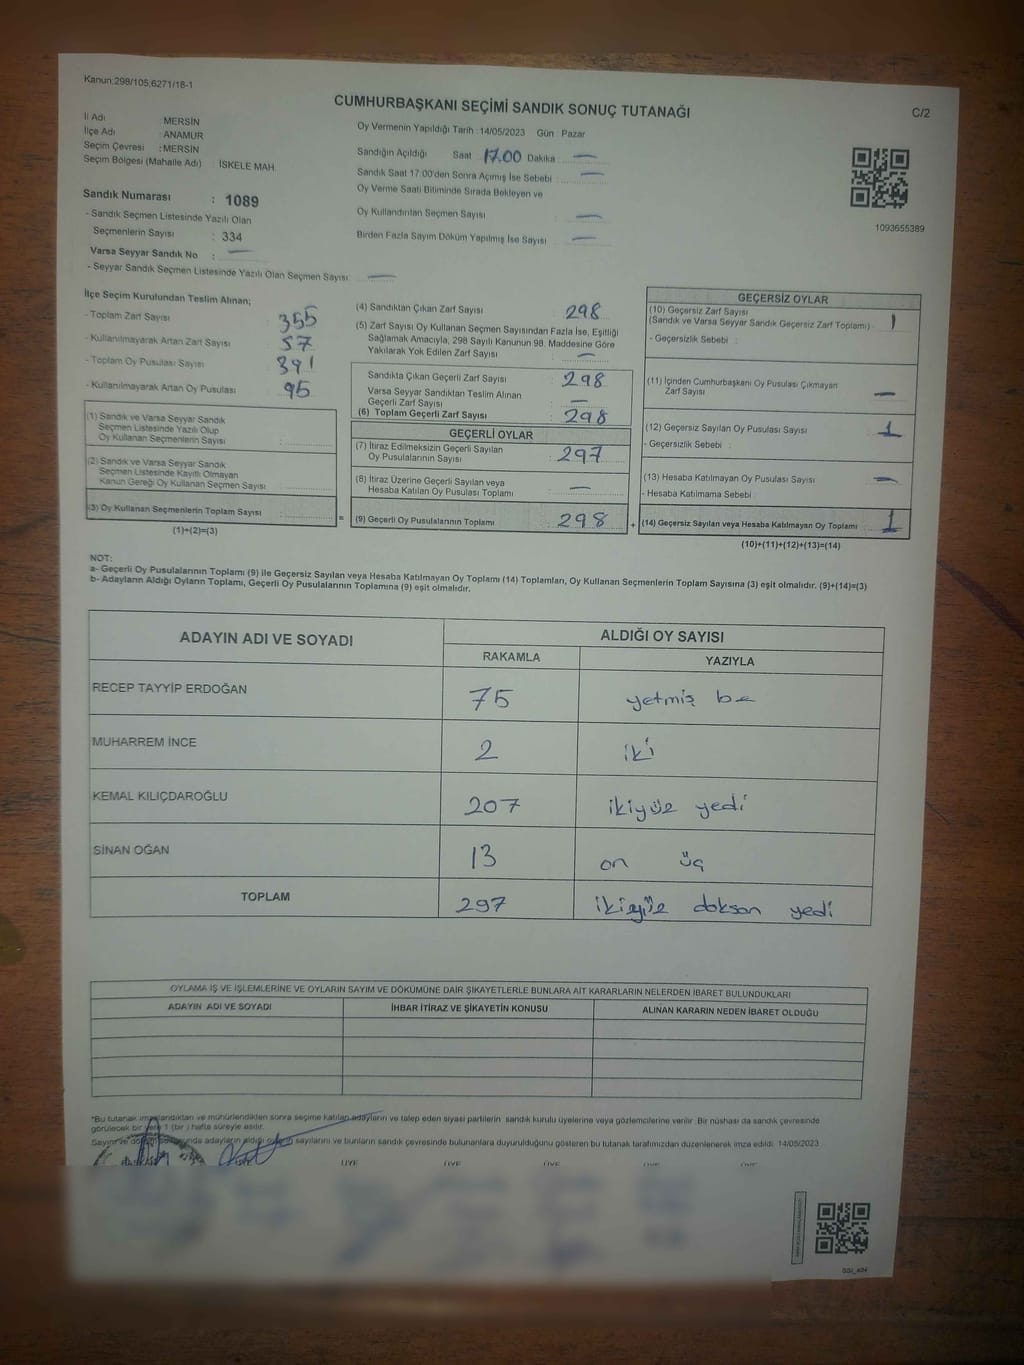 Kanun:298/105;6271/18-1
CUMHURBAŞKANI SEÇİMİ SANDIK SONUÇ TUTANAĞI
C/2
İl Adı : MERSİN
İlçe Adı : ANAMUR
Seçim Çevresi : MERSİN
Seçim Bölgesi (Mahalle Adı) : İSKELE MAH.
Sandık Numarası : 1089
- Sandık Seçmen Listesinde Yazılı Olan
Seçmenlerin Sayısı : 334
Varsa Seyyar Sandık No : —
- Seyyar Sandık Seçmen Listesinde Yazılı Olan Seçmen Sayısı: —
Oy Vermenin Yapıldığı Tarih :14/05/2023 Gün : Pazar
Sandığın Açıldığı Saat 17.00 Dakika —
Sandık Saat 17:00'den Sonra Açımış İse Sebebi : —
Oy Verme Saati Bitiminde Sırada Bekleyen ve
Oy Kullandırılan Seçmen Sayısı : —
Birden Fazla Sayım Döküm Yapılmış İse Sayısı : —
1093655389
İlçe Seçim Kurulundan Teslim Alınan;
- Toplam Zarf Sayısı : 355
- Kullanılmayarak Artan Zarf Sayısı : 57
- Toplam Oy Pusulası Sayısı : 391
- Kullanılmayarak Artan Oy Pusulası : 95
(1) Sandık ve Varsa Seyyar Sandık
Seçmen Listesinde Yazılı Olup
Oy Kullanan Seçmenlerin Sayısı :
(2) Sandık ve Varsa Seyyar Sandık
Seçmen Listesinde Kayıtlı Olmayan
Kanun Gereği Oy Kullanan Seçmen Sayısı :
(3) Oy Kullanan Seçmenlerin Toplam Sayısı :
(1)+(2)=(3)
=
(4) Sandıktan Çıkan Zarf Sayısı : 298
(5) Zarf Sayısı Oy Kullanan Seçmen Sayısından Fazla İse, Eşitliği
Sağlamak Amacıyla, 298 Sayılı Kanunun 98. Maddesine Göre
Yakılarak Yok Edilen Zarf Sayısı : —
Sandıkta Çıkan Geçerli Zarf Sayısı : 298
Varsa Seyyar Sandıktan Teslim Alınan
Geçerli Zarf Sayısı : —
(6) Toplam Geçerli Zarf Sayısı : 298
GEÇERLİ OYLAR
(7) İtiraz Edilmeksizin Geçerli Sayılan
Oy Pusulalarının Sayısı : 297
(8) İtiraz Üzerine Geçerli Sayılan veya
Hesaba Katılan Oy Pusulası Toplamı : —
(9) Geçerli Oy Pusulalarının Toplamı : 298
+
GEÇERSİZ OYLAR
(10) Geçersiz Zarf Sayısı
(Sandık ve Varsa Seyyar Sandık Geçersiz Zarf Toplamı) : 1
- Geçersizlik Sebebi :
(11) İçinden Cumhurbaşkanı Oy Pusulası Çıkmayan
Zarf Sayısı : —
(12) Geçersiz Sayılan Oy Pusulası Sayısı : 1
- Geçersizlik Sebebi :
(13) Hesaba Katılmayan Oy Pusulası Sayısı : —
- Hesaba Katılmama Sebebi :
(14) Geçersiz Sayılan veya Hesaba Katılmayan Oy Toplamı : 1
(10)+(11)+(12)+(13)=(14)
NOT:
a- Geçerli Oy Pusulalarının Toplamı (9) ile Geçersiz Sayılan veya Hesaba Katılmayan Oy Toplamı (14) Toplamları, Oy Kullanan Seçmenlerin Toplam Sayısına (3) eşit olmalıdır. (9)+(14)=(3)
b- Adayların Aldığı Oyların Toplamı, Geçerli Oy Pusulalarının Toplamına (9) eşit olmalıdır.
ADAYIN ADI VE SOYADI
ALDIĞI OY SAYISI
RAKAMLA YAZIYLA
RECEP TAYYİP ERDOĞAN 75 yetmiş be
MUHARREM İNCE 2 iki
KEMAL KILIÇDAROĞLU 207 ikiyüz yedi
SİNAN OĞAN 13 on üç
TOPLAM 297 ikiyüz doksan yedi
OYLAMA İŞ VE İŞLEMLERİNE VE OYLARIN SAYIM VE DÖKÜMÜNE DAİR ŞİKAYETLERLE BUNLARA AİT KARARLARIN NELERDEN İBARET BULUNDUKLARI
ADAYIN ADI VE SOYADI İHBAR İTİRAZ VE ŞİKAYETİN KONUSU ALINAN KARARIN NEDEN İBARET OLDUĞU
*Bu tutanak imzalandıktan ve mühürlendikten sonra seçime katılan adayların ve talep eden siyasi partilerin sandık kurulu üyelerine veya gözlemcilerine verilir. Bir nüshası da sandık çevresinde
görülecek bir yere 1 (bir ) hafta süreyle asılır.
Sayım ve adayların aldığı sayılarını ve bunların sandık çevresinde bulunanlara duyurulduğunu gösteren bu tutanak tarafımızdan düzenlenerek imza edildi. 14/05/2023
ÜYE ÜYE ÜYE ÜYE ÜYE